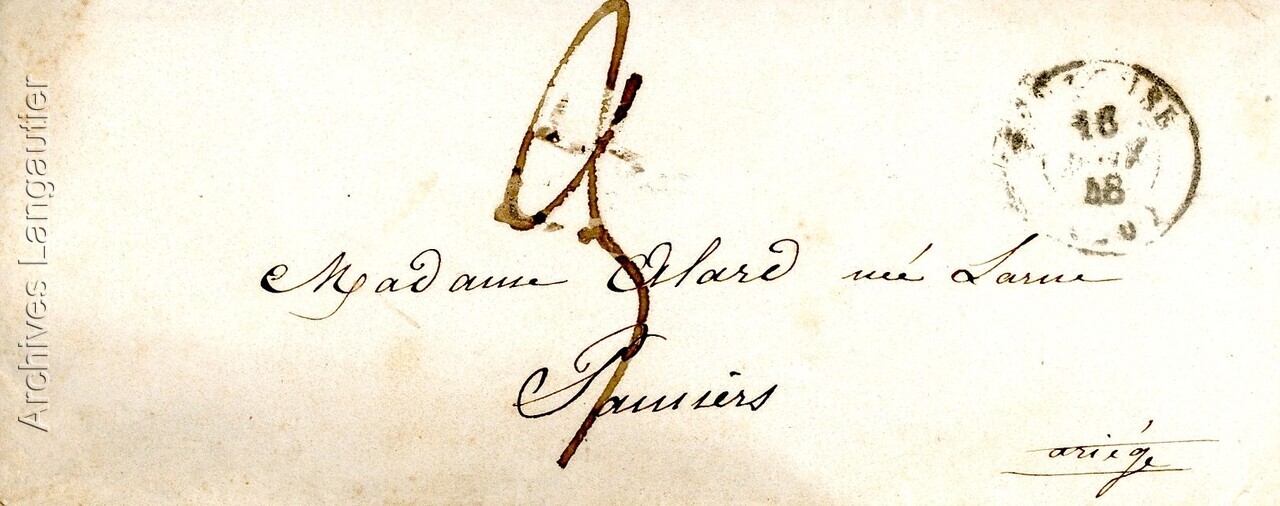 Archives Langautier
18
48
Madame Alard née Larue
Pamiers
ariége